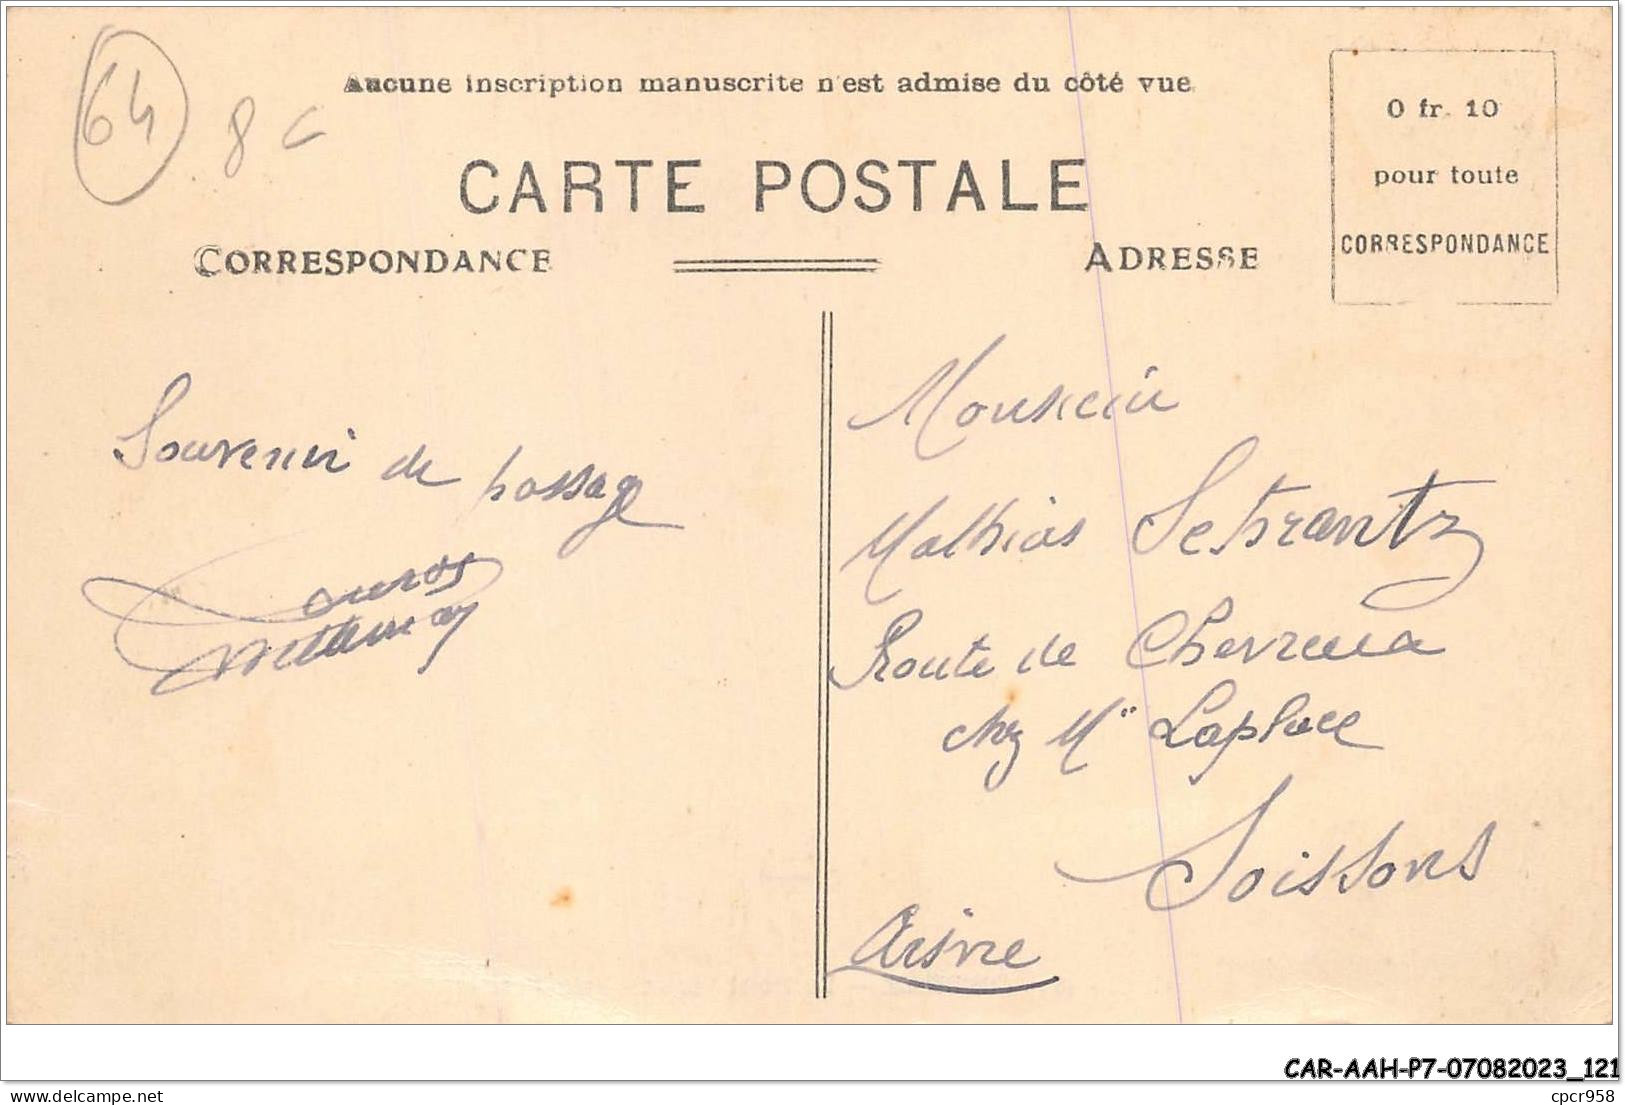 64
8
Aucune inscription manuscrite n'est admise du côté vue
CARTE POSTALE
CORRESPONDANCE
ADRESSE
0 fr. 10
pour toute
CORRESPONDANCE
Souvenir de passage
Monsieur
Mathias
Route de
chez Mr Laplace
Soissons
Aisne
CAR-AAH-P7-07082023_121
delcampe.net
cpcr958